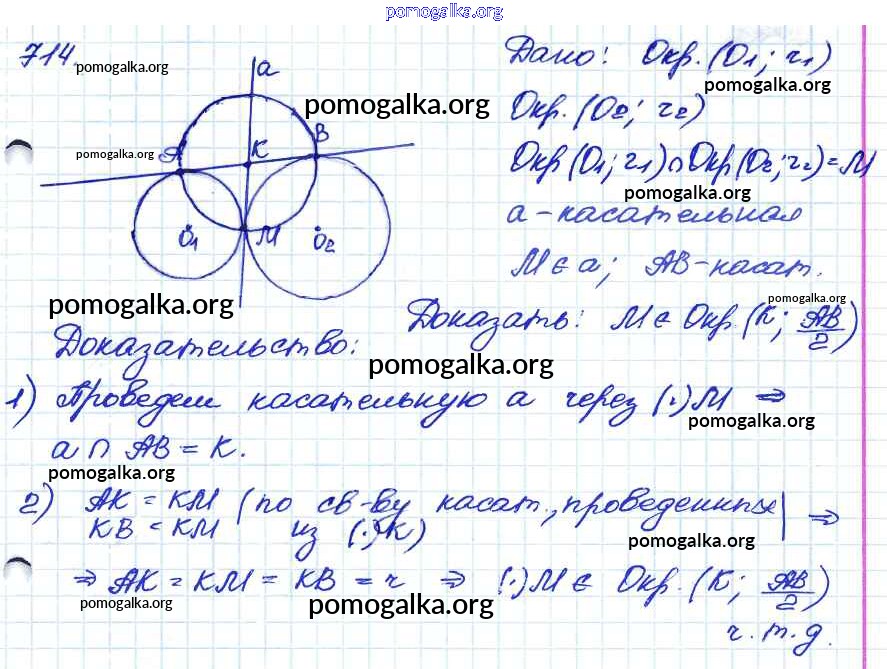 pomogalka.org
714.
pomogalka.org
a
pomogalka.org
B
A
K
pomogalka.org
O1
M
O2
Дано: Окр.(O1; r1)
pomogalka.org
Окр.(O2; r2)
Окр(O1; r1)∩Окр(O2; r2)=M
pomogalka.org
a-касательная
M∈a; AB-касат.
pomogalka.org
pomogalka.org
Доказать: M∈Окр.(K; AB/2)
Доказательство:
pomogalka.org
1) Проведем касательную a через (·)M ⇒
pomogalka.org
a ∩ AB = K.
pomogalka.org
2) AK = KM (по св-ву касат., проведенных
KB = KM из (·)K) ⇒
pomogalka.org
⇒ AK = KM = KB = r ⇒ (·)M ∈ Окр.(K; AB/2)
pomogalka.org
pomogalka.org
ч.т.д.